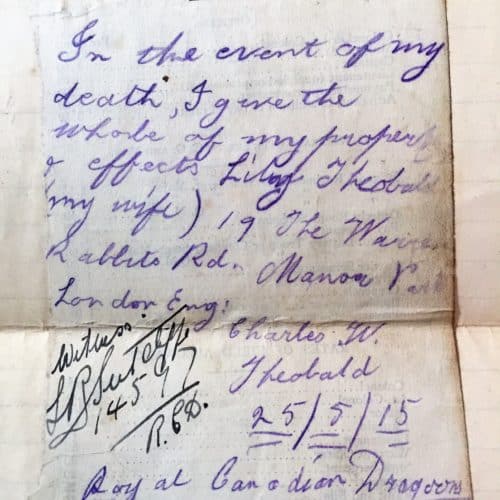 In the event of my
death, I give the
whole of my property
& effects Lily Theobald
(my wife) 19 The Warren
Rabbits Rd. Manor Park
London Eng:
Witness:
14597
R.C.D.
Charles W.
Theobald
25/5/15
Royal Canadian Dragoons